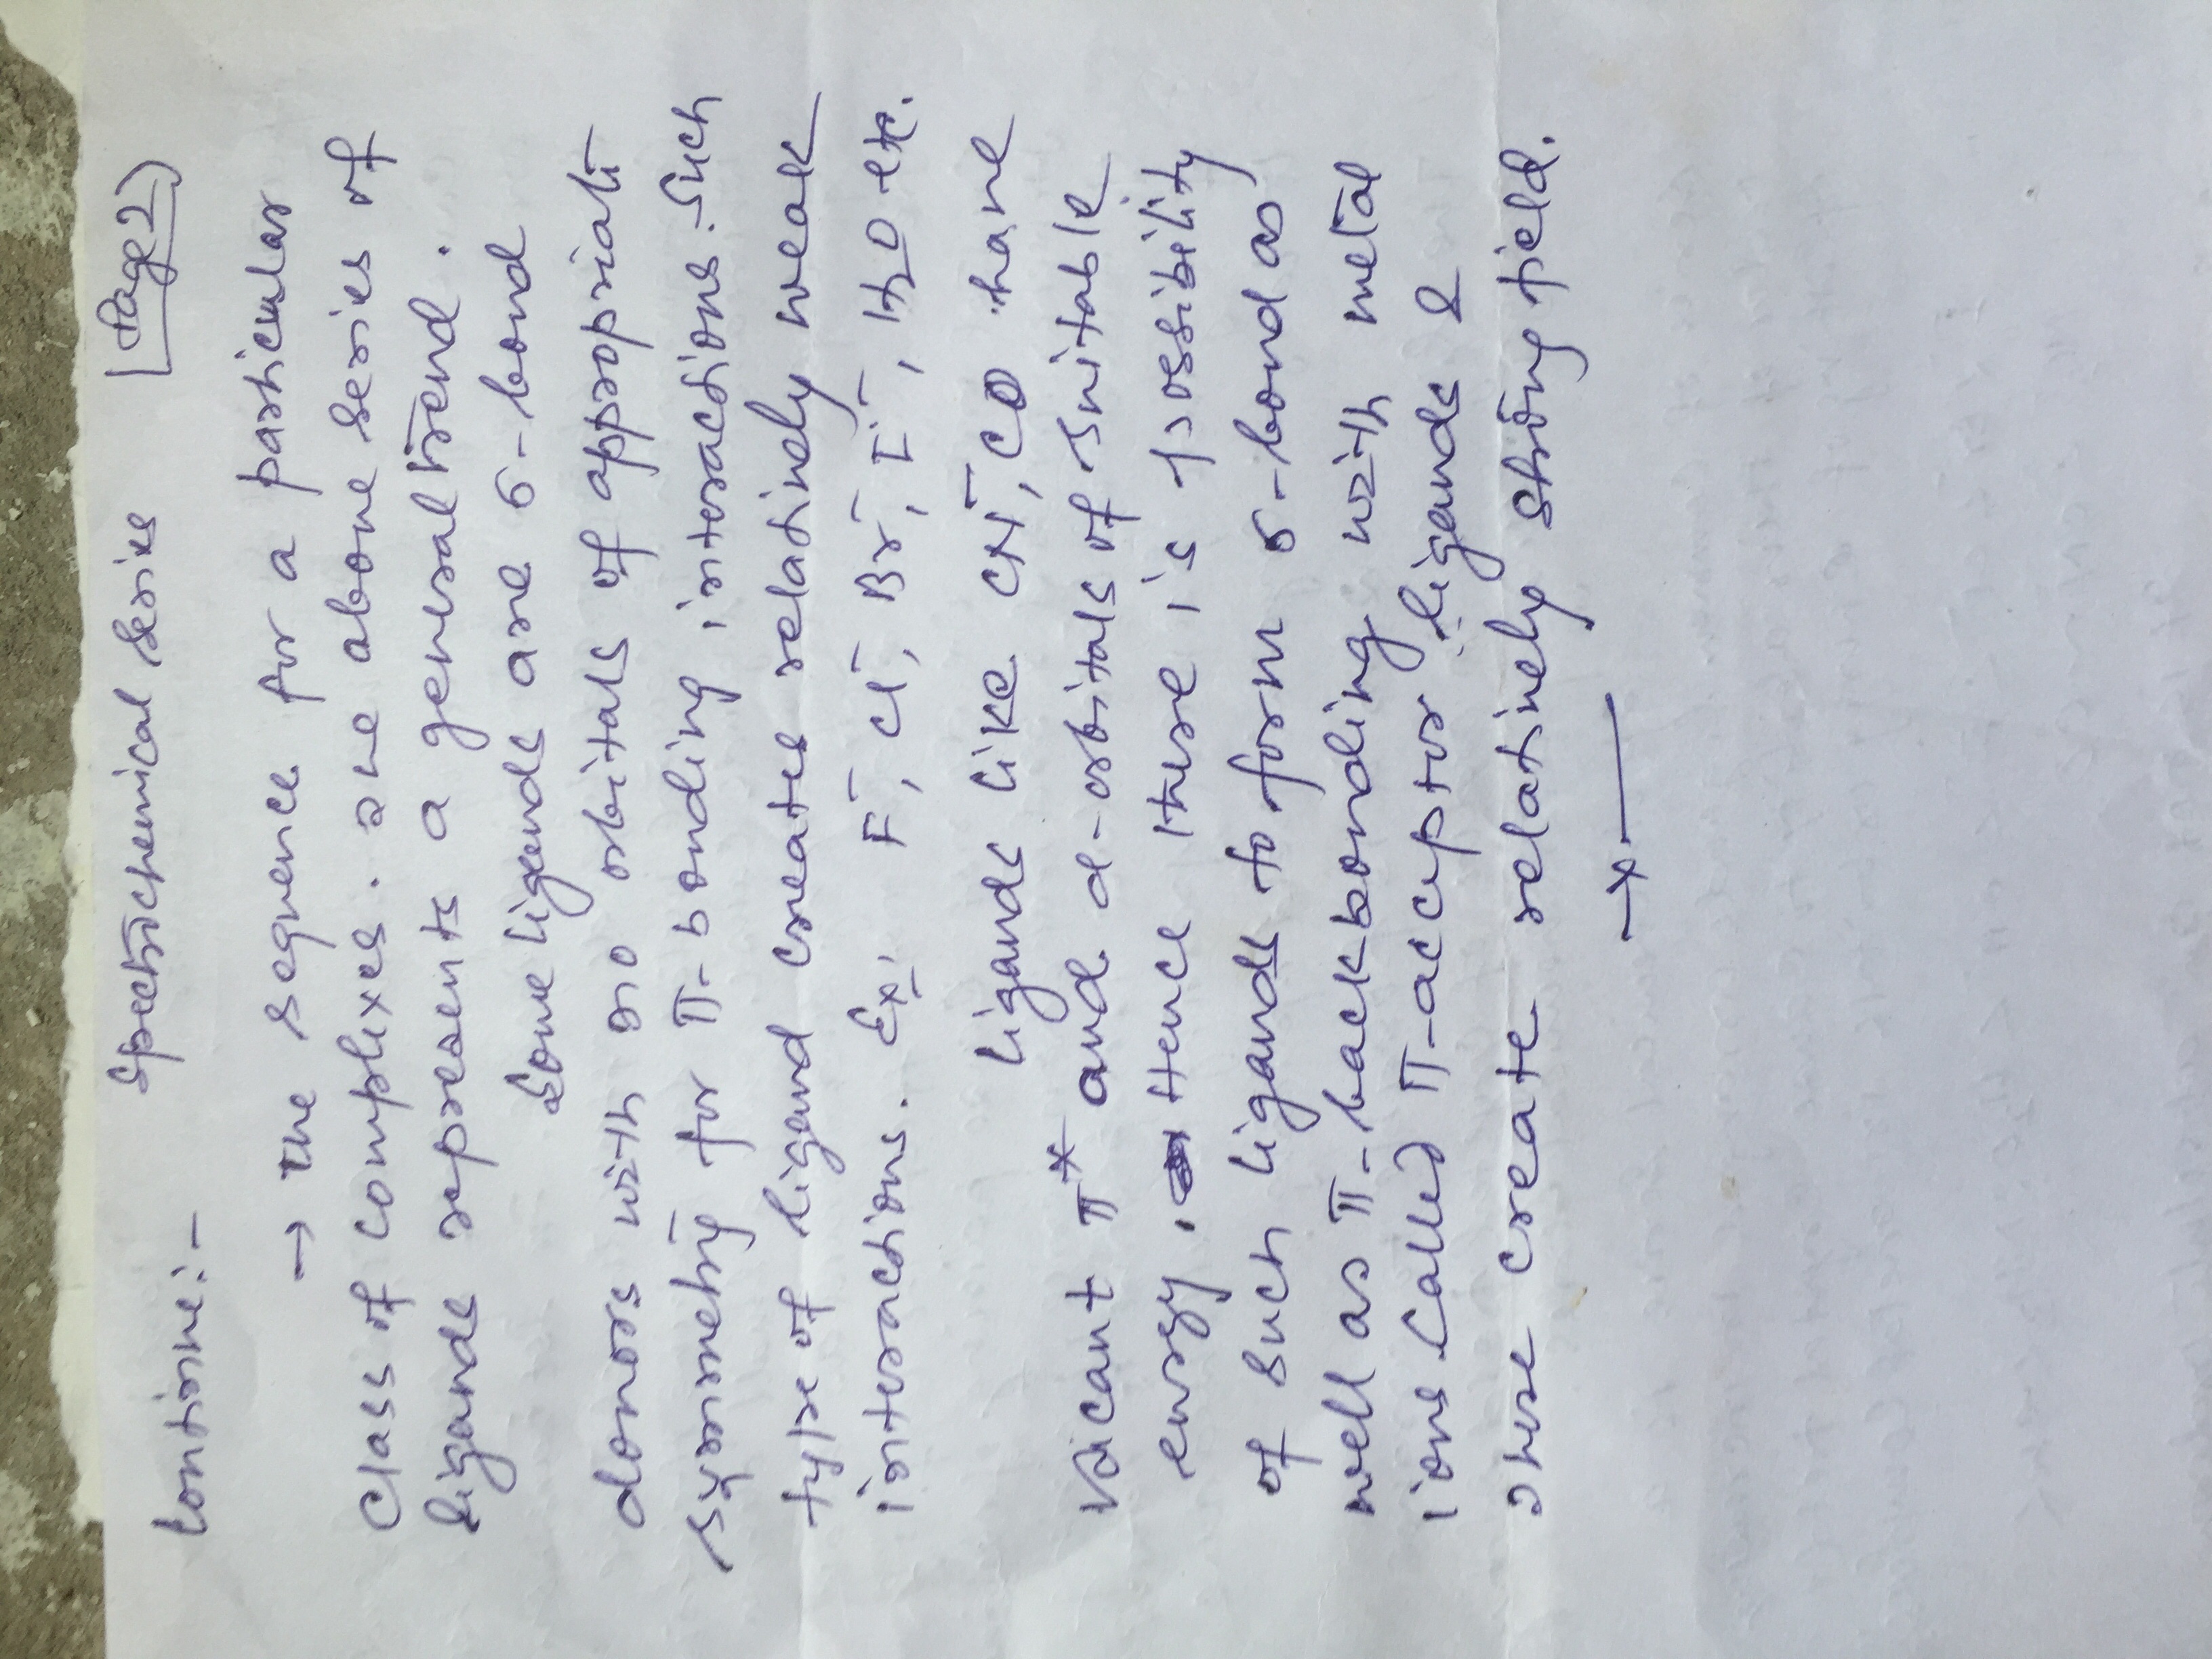 Continue:- Spectrochemical Series [Page 2]
→ The sequence for a particular
class of complexes. The above series of
ligands represents a general trend.
Some ligands are σ-bond
donors with no orbitals of appropriate
symmetry for π-bonding interactions. Such
type of ligand creates relatively weak
interactions. Ex, F⁻, Cl⁻, Br⁻, I⁻, H₂O etc.
Ligands like CN⁻, CO have
vacant π* and d-orbitals of suitable
energy. Hence there is possibility
of such ligands to form σ-bond as
well as π-backbonding with metal
ions called π-acceptor ligands &
these create relatively strong field.
—x—